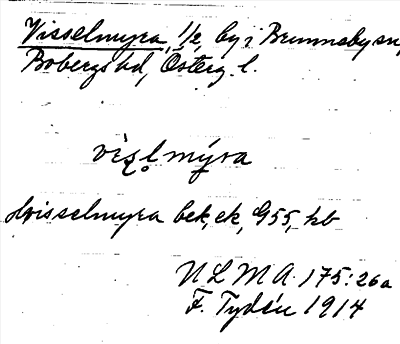 Visselmyra, 1/2, by i Brunneby sn,
Bobergs hd, Österg. l.
visl̥mýra
Hvisselmyra bek, ek, G55, kb
ULMA 175:26a
F. Tydén 1914